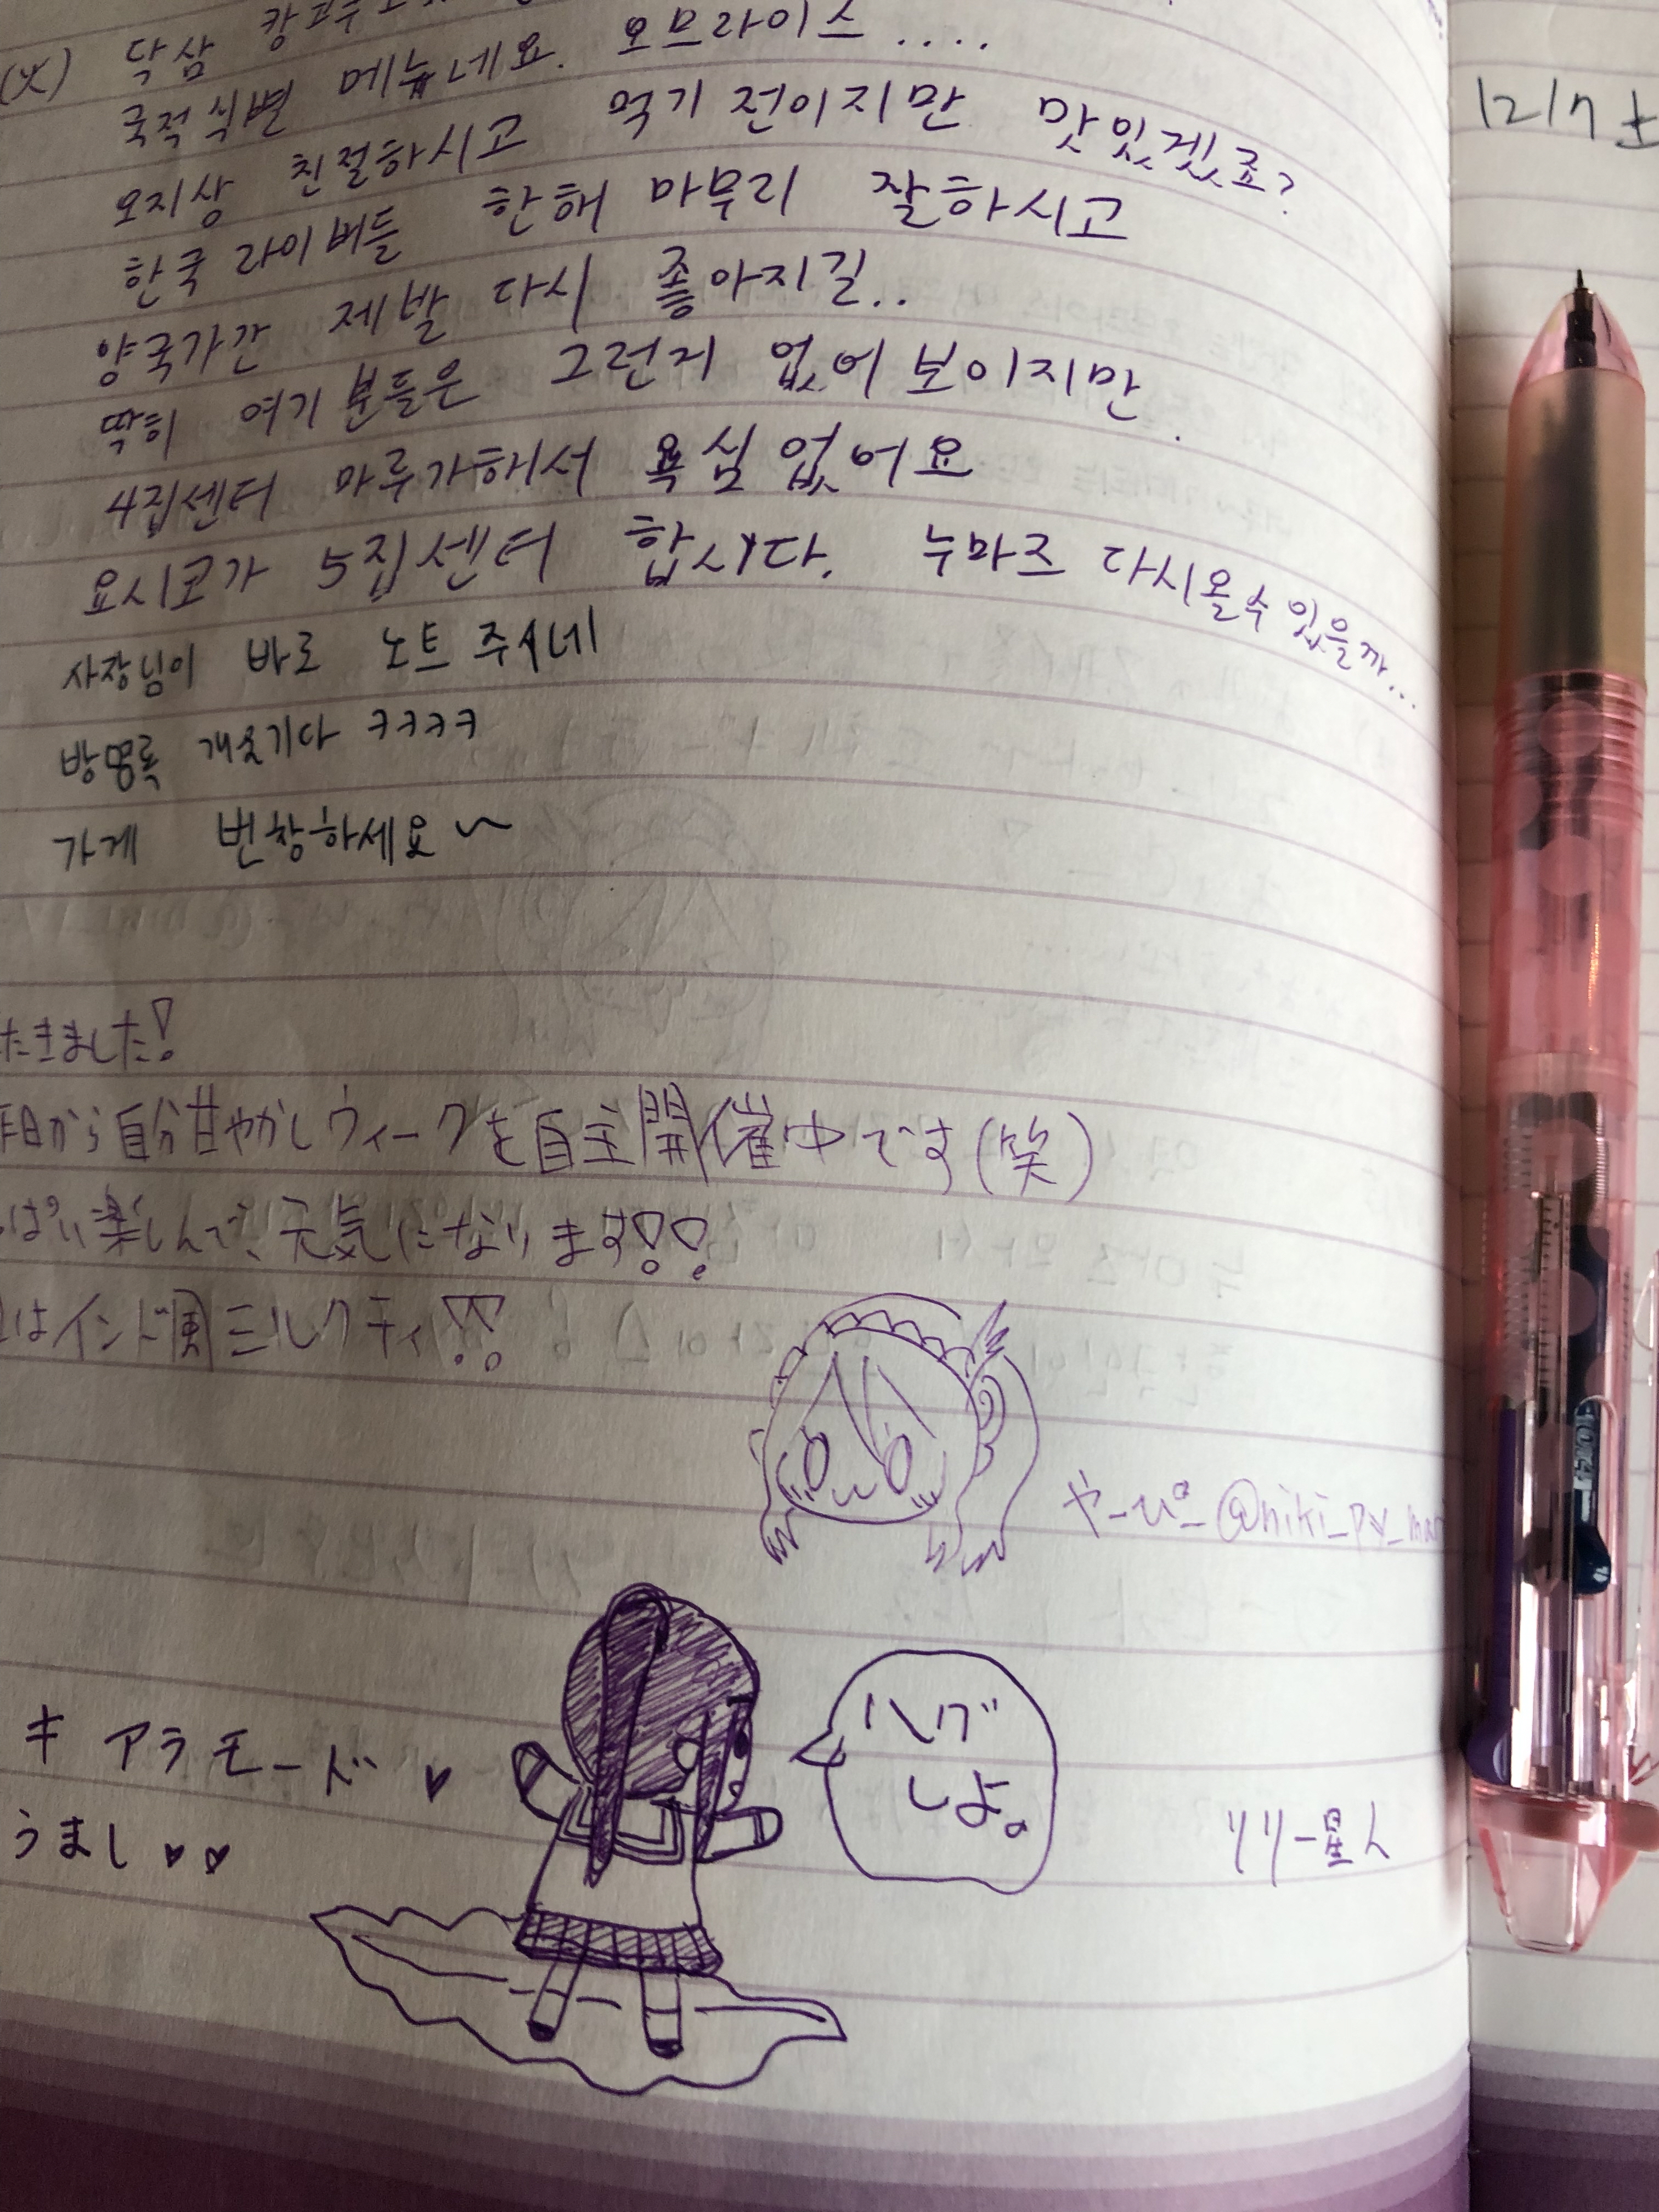 (火) 닥삼
국적식별 메뉴네요. 오므라이스....
오지상 친절하시고 먹기 전이지만 맛있겠죠?
한국 라이버들 한해 마무리 잘하시고
양국가간 제발 다시 좋아지길..
딱히 여기 분들은 그런지 없어 보이지만.
4집센터 마루가해서 욕심 없어요
요시코가 5집센터 합시다. 누마즈 다시올수 있을까...
사장님이 바로 노트 주시네
방명록 개웃기다 ㅋㅋㅋㅋ
가게 번창하세요~
たきました!
昨日から自分甘やかしウィークを自主開催中です(笑)
ぱい楽しんで、元気になります!!
はインド風ミルクティ!!
やーぴー @niki_py_mar
キ アラモード♥
うまし♥♥
ハグ
しよ。
リリー星人
12/7 土